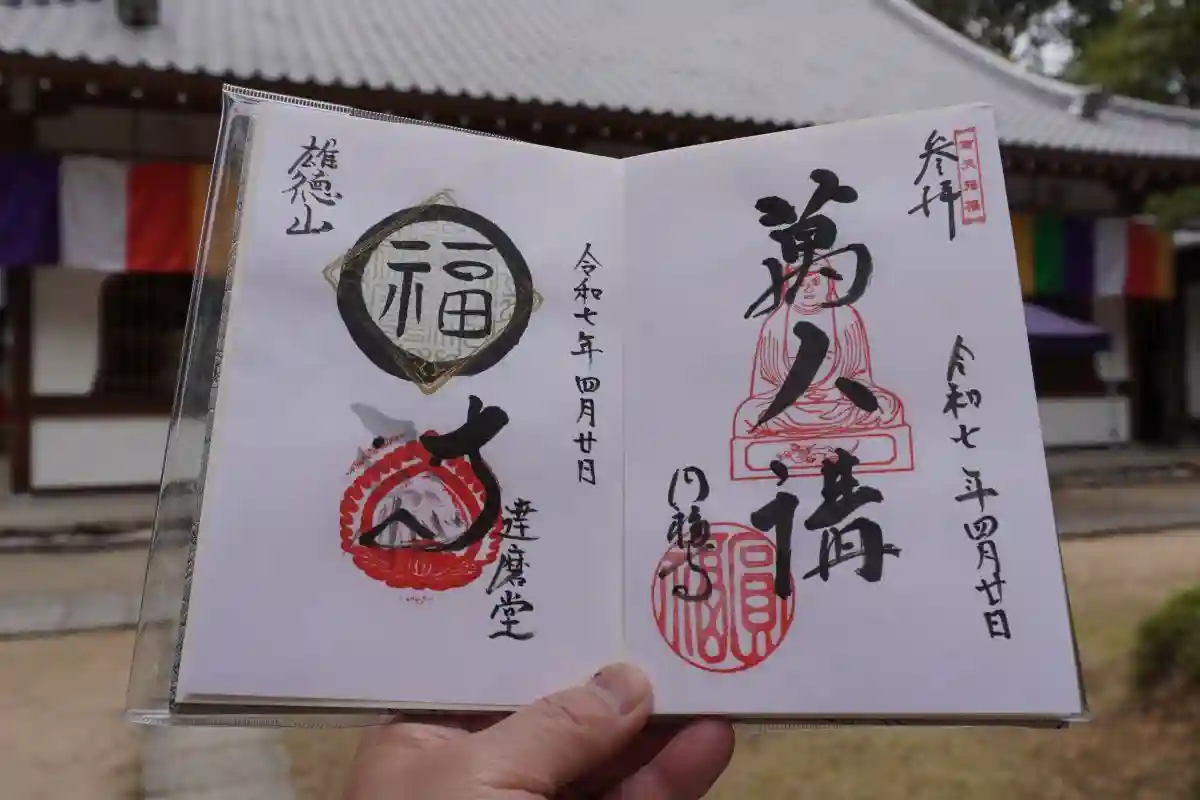 参拝
萬人講
令和七年四月廿日
円福寺
圓福
令和七年四月廿日
福
達磨堂
雄徳山